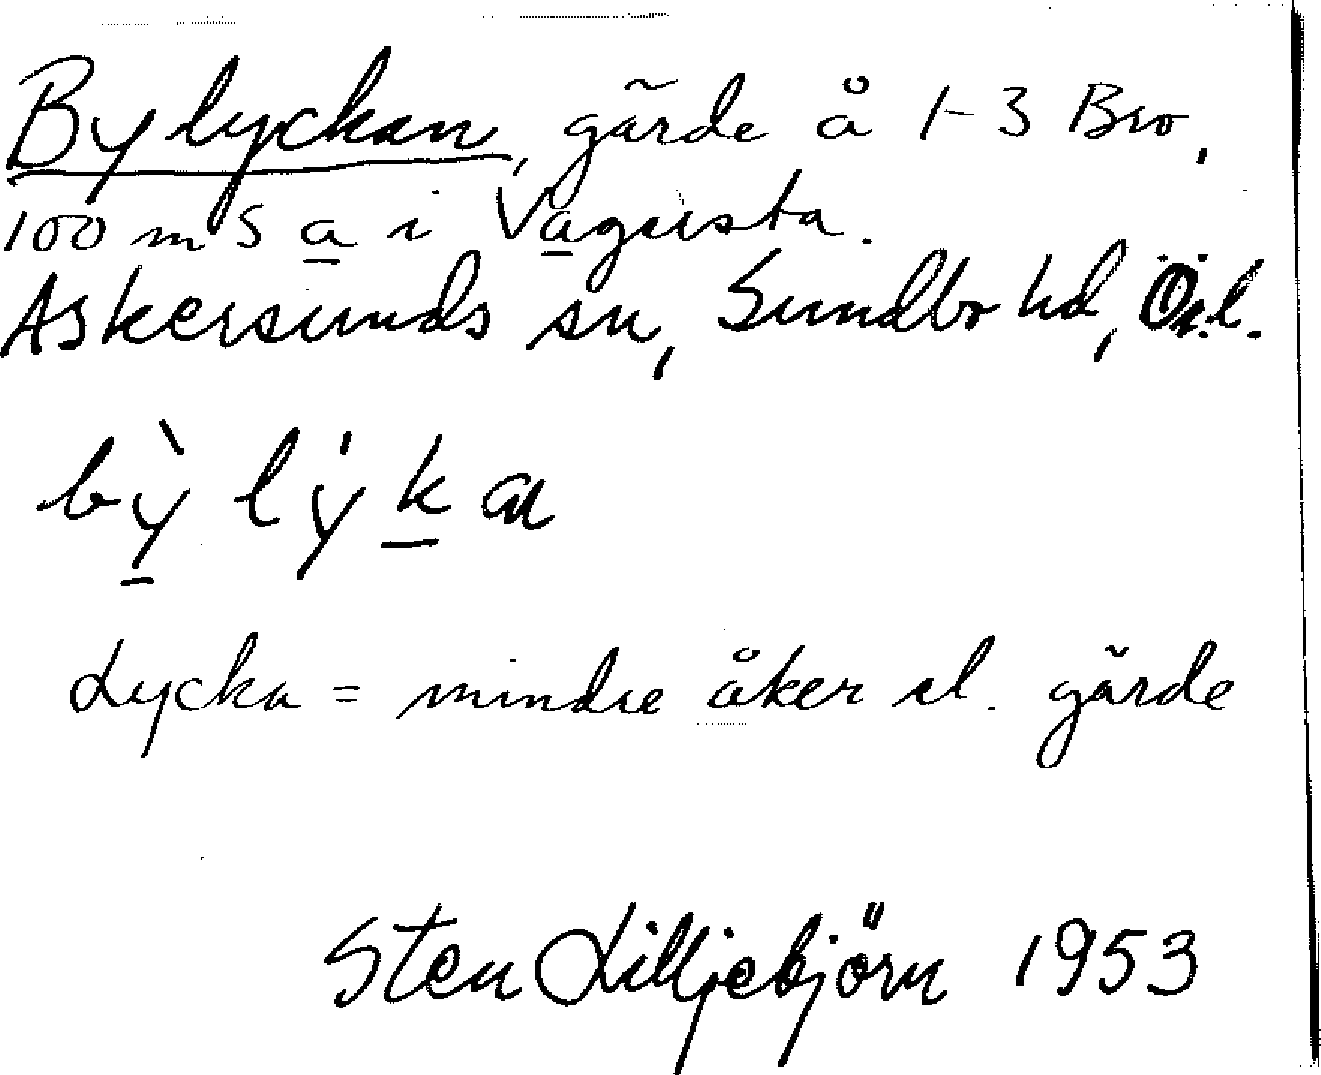 Bylyckan, gärde å 1-3 Bro,
100 m S a i Vagersta.
Askersunds sn, Sundbo hd, Ör.l.
bỳ lýkan
Lycka = mindre åker el. gärde
Sten Lilljebjörn 1953